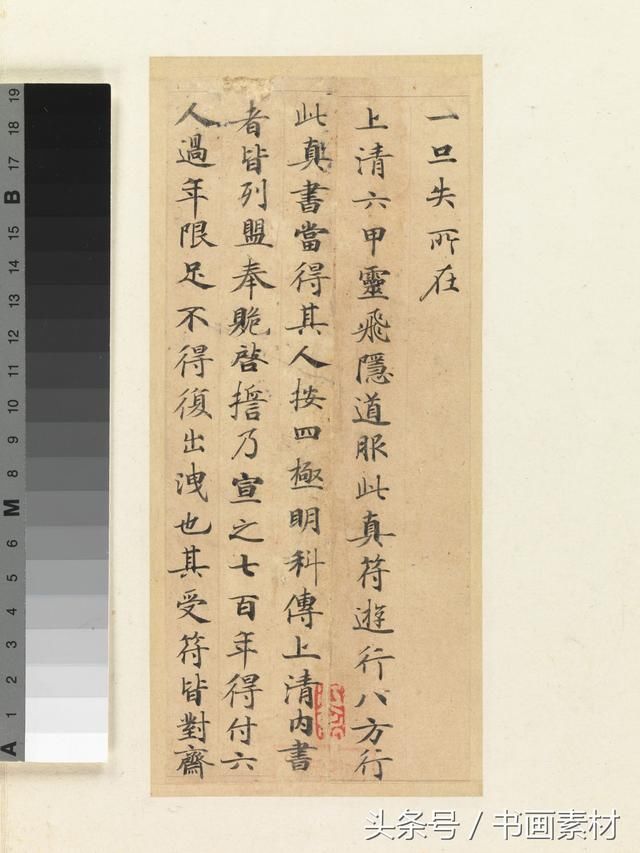 一旦失所在
上清六甲靈飛隱道服此真符遊行八方行
此真書當得其人按四極明科傳上清內書
者皆列盟奉跪啓誓乃宣之七百年得付六
人過年限足不得復出洩也其受符皆對齋
A 1 2 3 4 5 6 M 8 9 10 11 12 13 14 15 B 17 18 19
头条号 / 书画素材